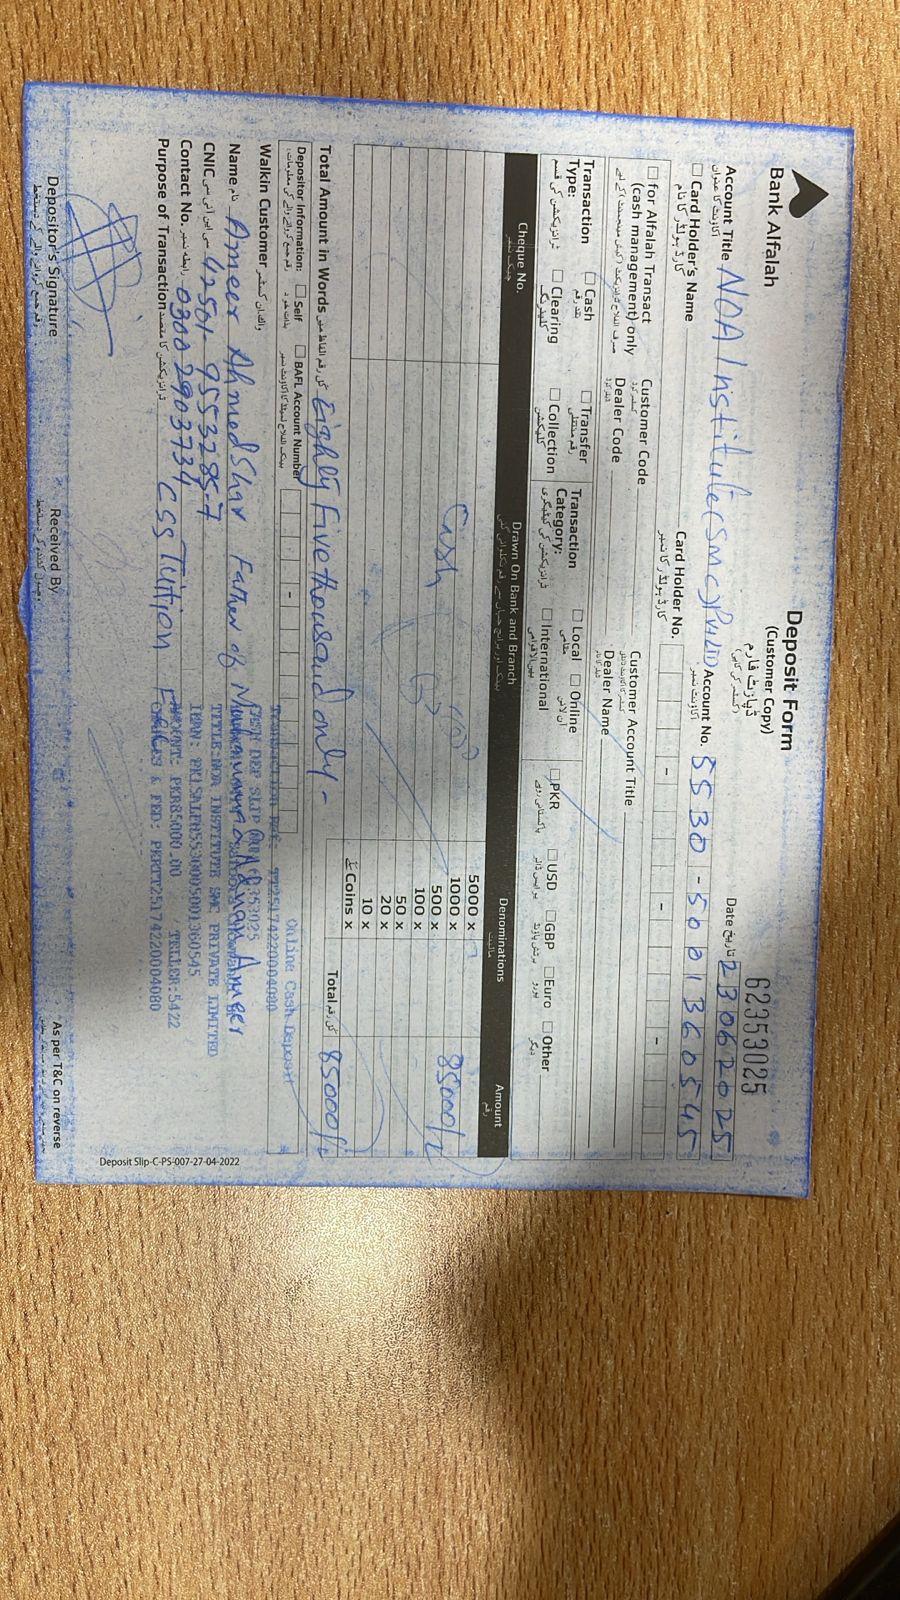 Bank Alfalah
Deposit Form
(Customer Copy)
ڈپازٹ فارم
(کسٹمر کی کاپی)
62353025
Date تاریخ 23062025
Account Title NOA Institute (SMC) Pvt LTD Account No. 5530-5001360545
اکاؤنٹ کا عنوان اکاؤنٹ نمبر
Card Holder's Name Card Holder No.
کارڈ ہولڈر کا نام کارڈ ہولڈر کا نمبر
for Alfalah Transact Customer Code Customer Account Title
(cash management) only Dealer Code Dealer Name
Transaction Type: Cash Transfer Transaction Category: Local Online PKR USD GBP Euro Other
Clearing Collection International
Cheque No. Drawn On Bank and Branch Denominations Amount
چیک نمبر رقم
5000 x
Cash 1000 x 85000/-
500 x
100 x
50 x
20 x
10 x
Coins x سکے
Total Amount in Words Eighty Five thousand only - Total کل رقم 85000/-
Depositor Information: Self BAFL Account Number
Online Cash Deposit
TT25174220004080
Walkin Customer
CASH DEP SLIP
Name نام Ameer Ahmed Shar Father of Muhammad Adnan Ameer
TITLE:NOA INSTITUTE SMC PRIVATE LIMITED
CNIC 42501-9553285-7
Contact No. رابطہ نمبر 0300 2903734
AMOUNT: PKR85000.00 TELLER:5422
Purpose of Transaction CSS Tuition
& FED: PKRTT25174220004080
Depositor's Signature Received By *As per T&C on reverse
Deposit Slip-C-PS-007-27-04-2022